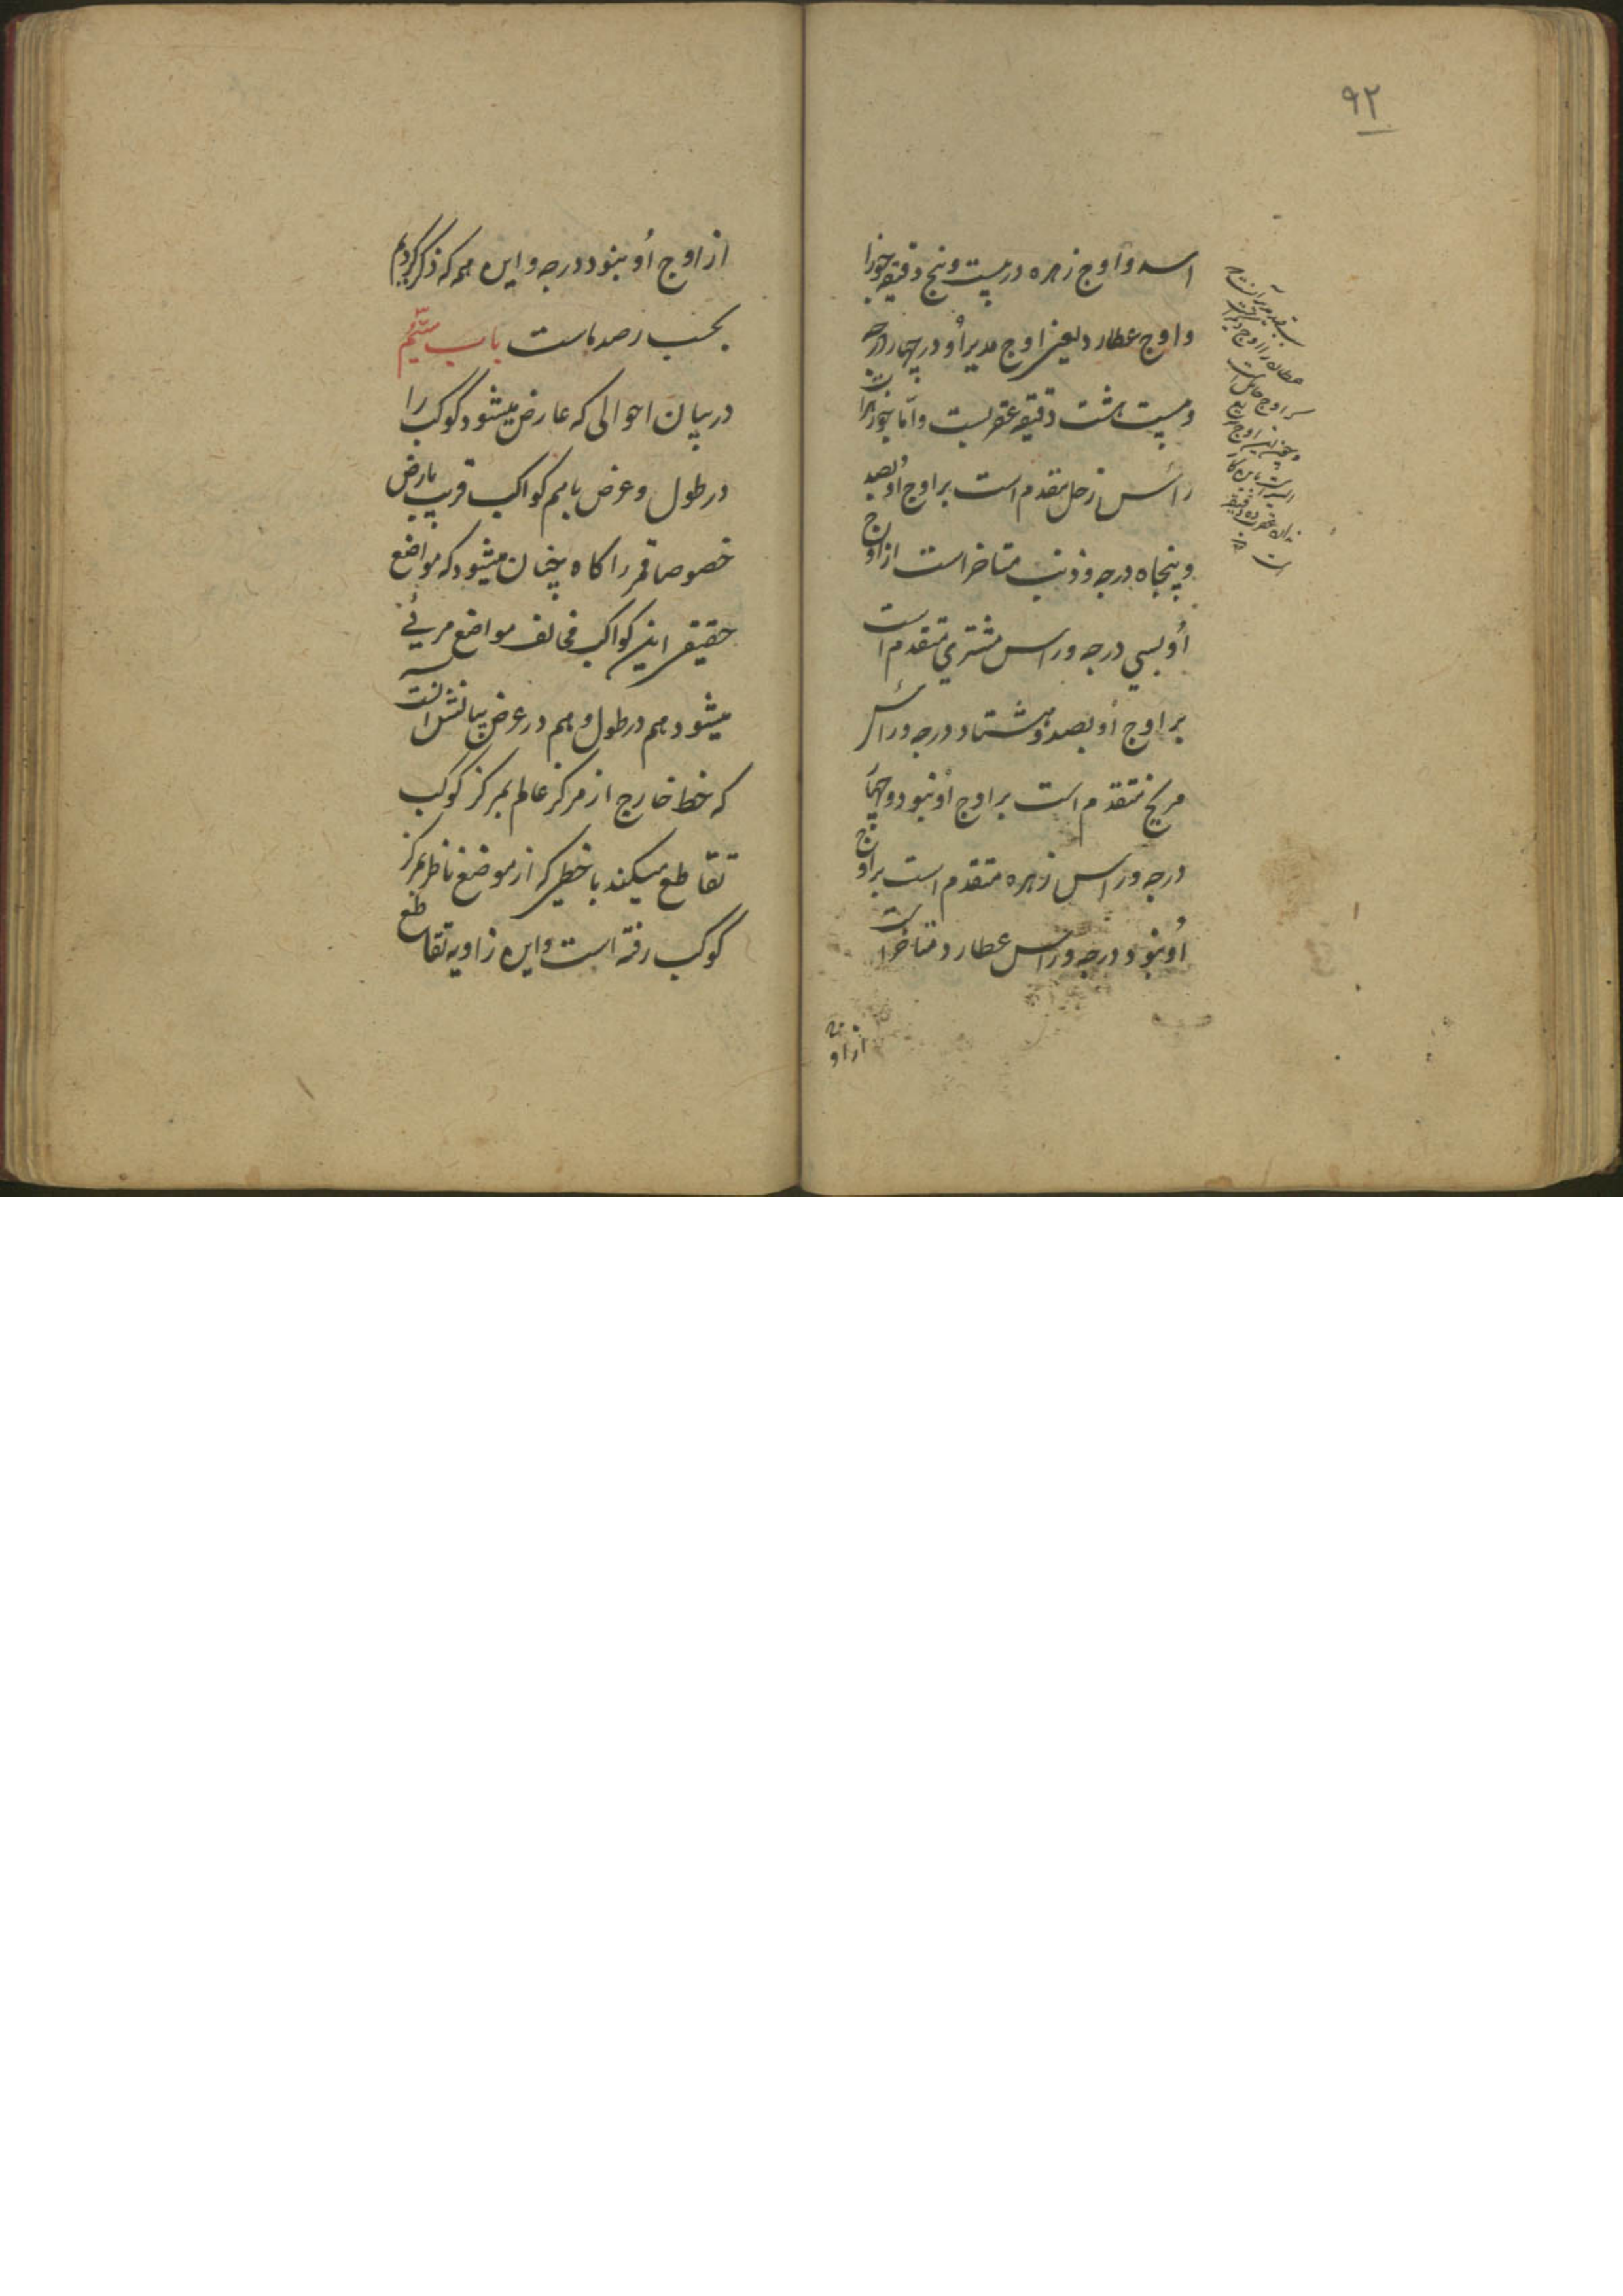 ۹۲
اسد و اوج زهره در بیست و پنج دقیقه جوزا
و اوج عطارد یعنی اوج مدیر أو در چهار درجه
و بیست هشت دقیقه عقربست و اما جوزهرات
رأس زحل متقدم است بر اوج أو بصد
و پنجاه درجه و ذنب متاخر است از اوج
أو بسی درجه و راس مشتری متقدم است
بر اوج أو بصد و هشتاد درجه و رأس
مریخ متقدم است بر اوج أو بنود و چهار
درجه و راس زهره متقدم است بر اوج
أو بنود درجه و راس عطارد متاخر است
از او
از اوج أو بنود درجه و این همه که ذکر کردیم
بحسب رصدهاست باب سیّم
در بیان احوالی که عارض میشود کوکب را
در طول و عرض با هم کواکب قریب بارض
خصوصا قمر را کاه چنان میشود که مواضع
حقیقی این کواکب مخالف مواضع مرئے
میشود هم در طول و هم در عرض بیانش آنست
که خط خارج از مرکز عالم بمرکز کوکب
تقاطع میکند با خطی که از موضع ناظر بمرکز
کوکب رفته است و این زاویه تقاطع